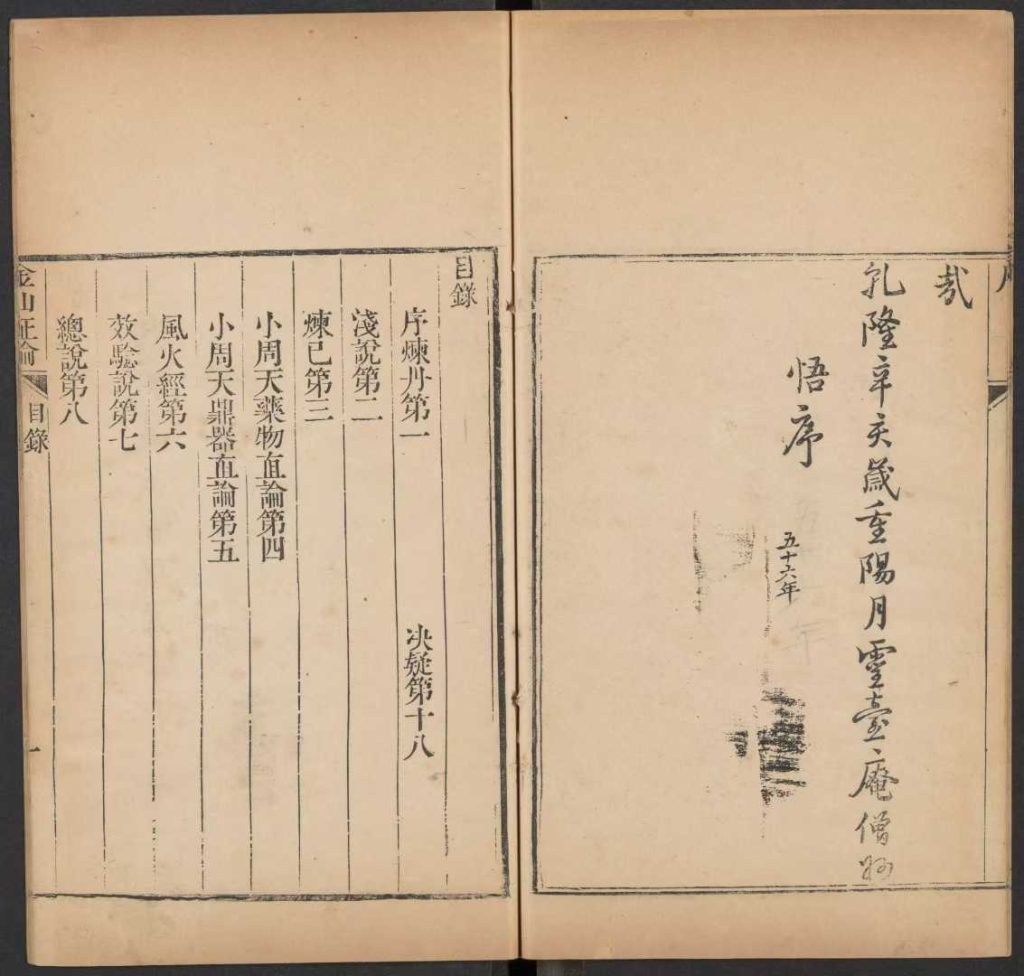 哉
乹隆辛亥歲重陽月靈臺庵僧妙
悟序
五十六年
目錄
序煉丹第一
决疑第十八
淺說第二
煉已第三
小周天藥物直論第四
小周天鼎器直論第五
風火經第六
效驗說第七
總說第八
金仙証論 目錄 一